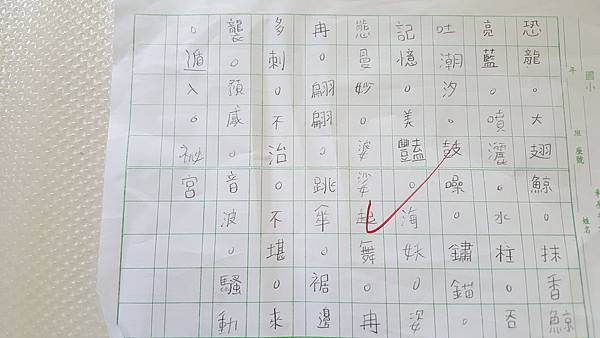 國小 年 班 座號 姓名
恐龍。大翅鯨。抹香鯨
。亮藍。噴灑。水柱。吞
吐潮汐。鼓噪。鏽錨。
記憶。美豔。海妖。姿
態曼妙。婆娑起舞。冉
冉。翩翩。跳傘。裾邊
多刺。不治。不堪。來
襲。預感。音波。騷動
。遁入。祕宮